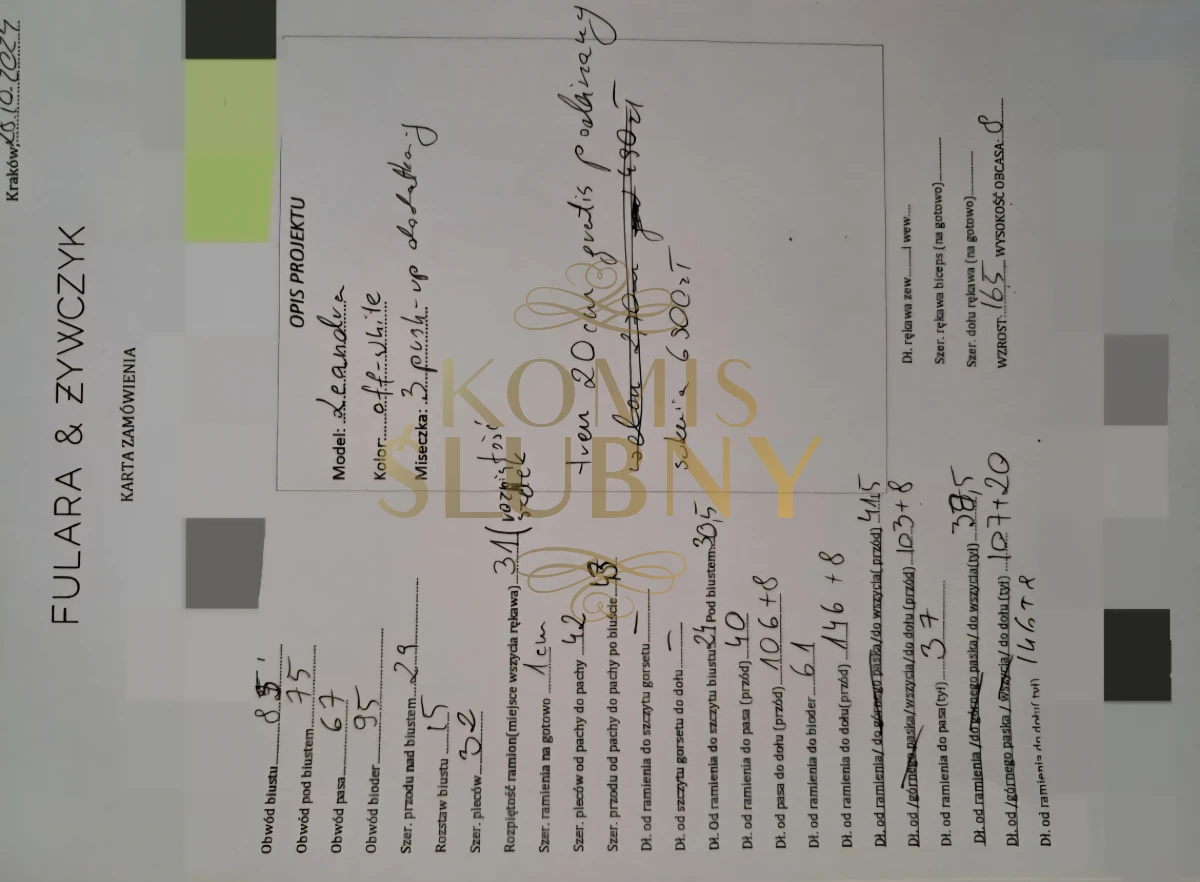 Kraków, 28.10.2024
FULARA & ŻYWCZYK
KARTA ZAMÓWIENIA
Obwód biustu 85
Obwód pod biustem 75
Obwód pasa 67
Obwód bioder 95
Szer. przodu nad biustem 29
Rozstaw biustu 15
Szer. pleców 32
Rozpiętość ramion(miejsce wszycia rękawa) 31 (rozpiętość
Szer. ramienia na gotowo 1 cm
Szer. pleców od pachy do pachy 42
Szer. przodu od pachy do pachy po biuście 43
Dł. od ramienia do szczytu gorsetu —
Dł. od szczytu gorsetu do dołu —
Dł. Od ramienia do szczytu biustu 24 Pod biustem 30,5
Dł. od ramienia do pasa (przód) 40
Dł. od pasa do dołu (przód) 106+8
Dł. od ramienia do bioder 61
Dł. od ramienia do dołu(przód) 146 + 8
Dł. od ramienia/ do górnego paska/do wszycia( przód) 41,5
Dł. od /górnego paska/wszycia/do dołu (przód) 103+8
Dł. od ramienia do pasa(tył) 37
Dł. od ramienia /do górnego paska/ do wszycia(tył) 38,5
Dł. od /górnego paska/ wszycia/ do dołu (tył) 107+20
Dł. od ramienia do dołu( tył) 146+8
OPIS PROJEKTU
Model: Leandra
Kolor: off-white
Miseczka: 3 push-up dodatkowy
tren 20 cm gratis podpinany
welon 270 cm 490 zł
suknia 6300 zł
Dł. rękawa zew. / wew.
Szer. rękawa biceps (na gotowo)
Szer. dołu rękawa (na gotowo)
WZROST: 165 WYSOKOŚĆ OBCASA: 8
KOMIS
ŚLUBNY